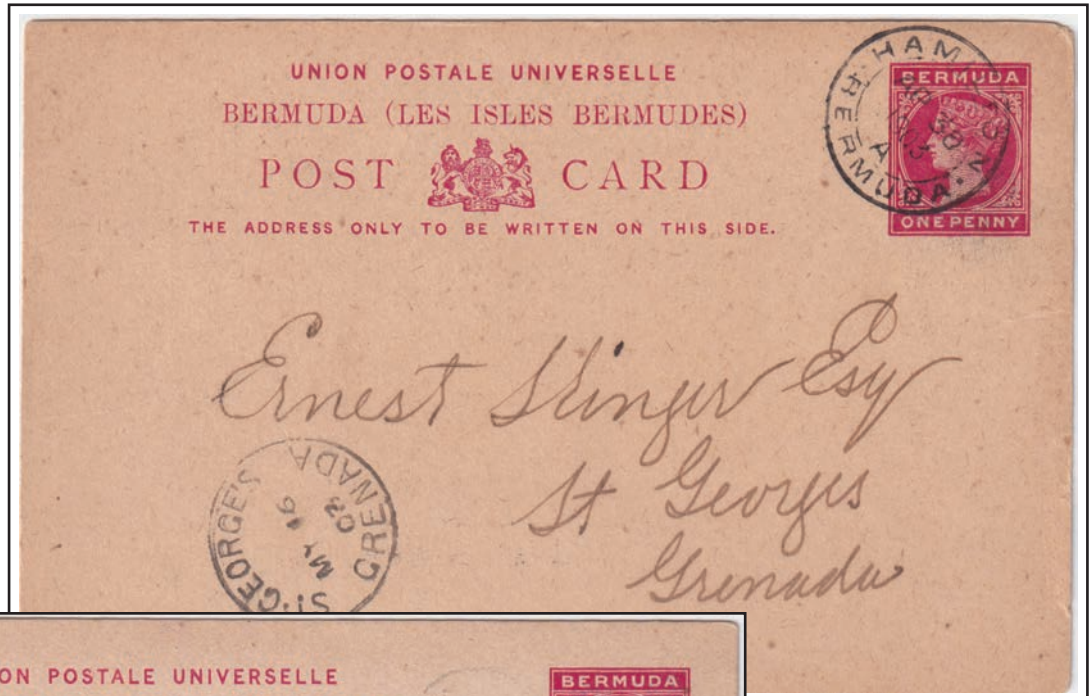 UNION POSTALE UNIVERSELLE
BERMUDA (LES ISLES BERMUDES)
POST CARD
THE ADDRESS ONLY TO BE WRITTEN ON THIS SIDE.
BERMUDA
ONE PENNY
BERMUDA
Ernest Esq
St Georges
Grenada
ST. GEORGE'S
GRENADA
MY 16
03
ON POSTALE UNIVERSELLE
BERMUDA